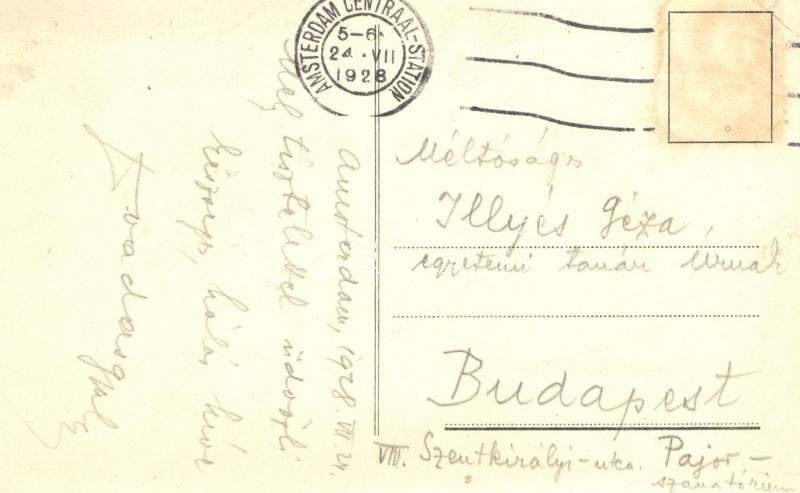 AMSTERDAM CENTRAAL-STATION
5-6
24 · VII
1928
Amsterdam, 1928. VII. 24.
Mély tisztelettel üdvözli
hálás híve
Méltóságos
Illyés Géza,
egyetemi tanár Úrnak
Budapest
VIII. Szentkirályi-utca. Pajor-
szanatórium